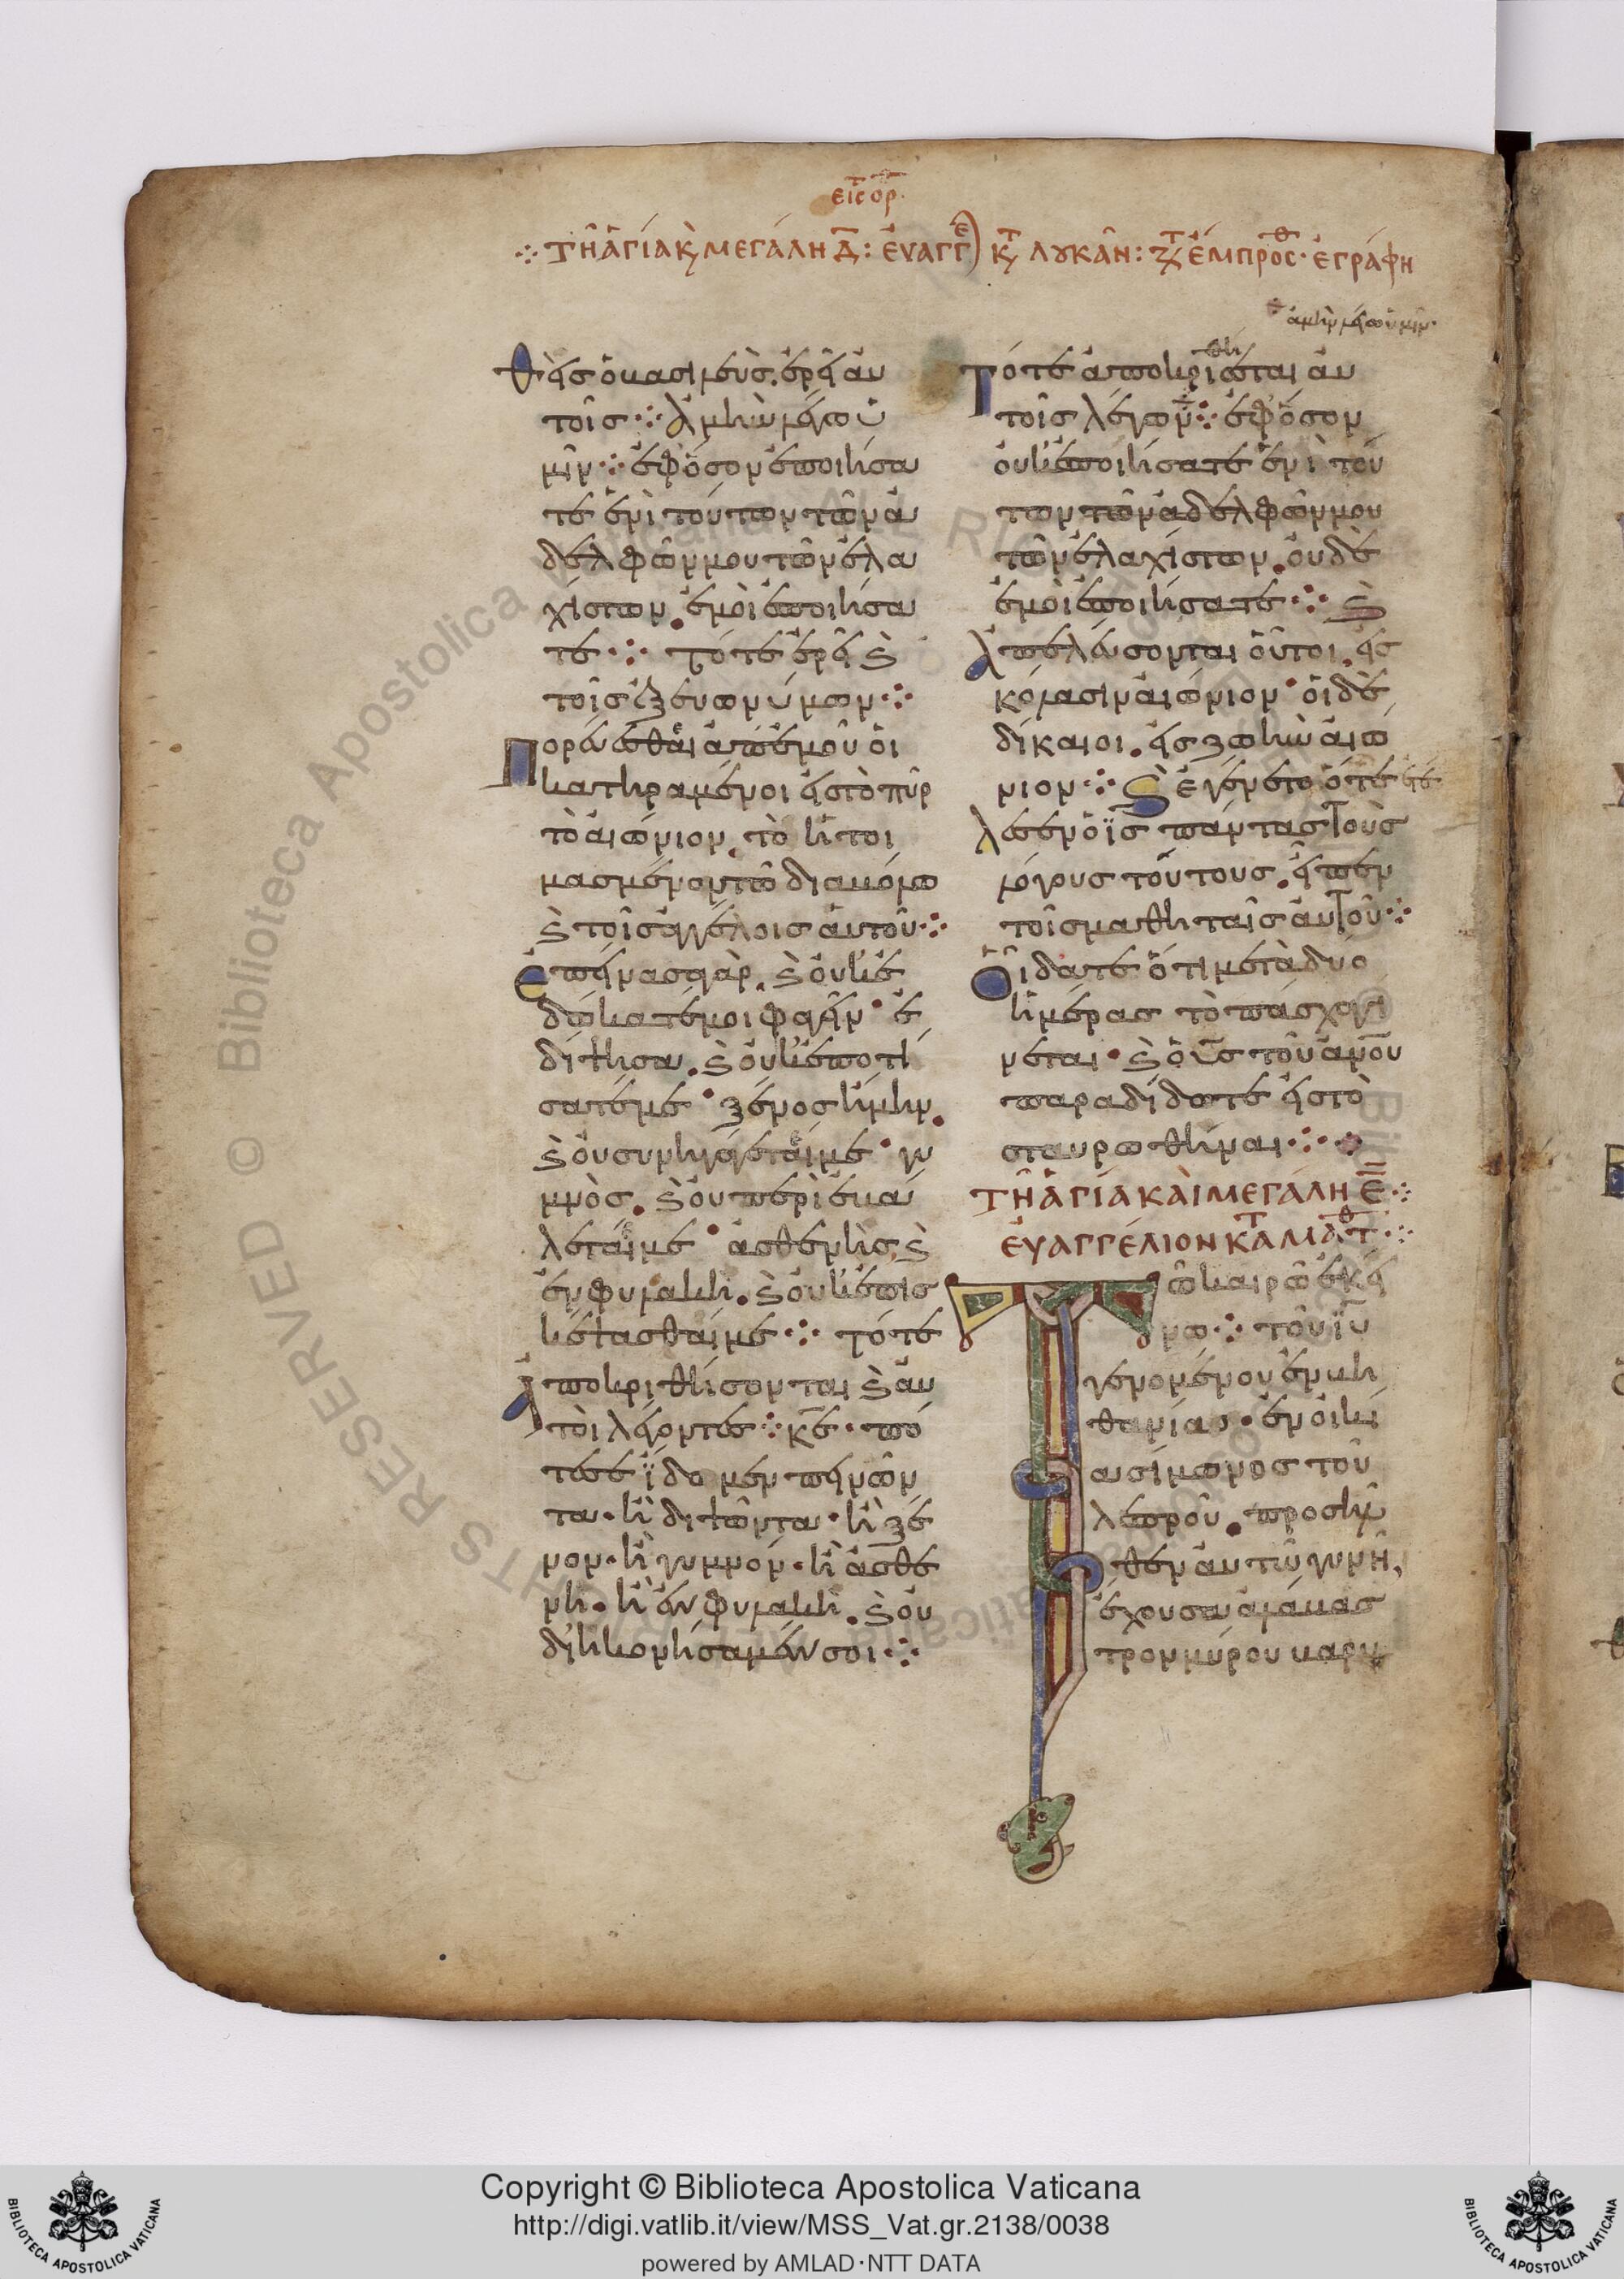 εἰς ὀρ
⁘ ΤΗ ΑΓΙΑ Κ ΜΕΓΑΛΗ Δ: ΕΥΑΓΓΕ ΚΤ ΛΟΥΚΑΝ: ΖΤ ΕΜΠΡΟΣΘ· ΕΓΡΑΦΗ
ἀμὴν λέγω ὑμῖν·
θεὶς ὁ βασιλεὺς. ἐρεῖ αυ
τοῖς ⁘ Ἀμὴν λέγω ὑ
μῖν ⁘ ἐφ' ὅσον ἐποιήσα
τε ἑνὶ τούτων τῶν ἀ
δελφῶν μου τῶν ἐλα
χίστων. ἐμοὶ ἐποιήσα
τε ⁘ Τότε ἐρεῖ ϗ
τοῖς ἐξ εὐωνύμων ⁘
Πορεύεσθαι ἀπ' ἐμοῦ οἱ
κατηραμένοι εἰς τὸ πῦρ
τὸ αἰώνιον. τὸ ἡτοι
μασμένον τῶ διαβόλω
ϗ τοῖς ἀγγέλοις αὐτοῦ ⁘
Ἐπείνασα γὰρ. ϗ οὐκ ἐ
δώκατέ μοι φαγεῖν· ἐ
δίψησα. ϗ οὐκ ἐποτί
σατέ με· ξένος ἤμην.
ϗ οὐ συνηγάγεταί με· γυ
μνὸς. ϗ οὐ περιεβά
λεταί με· ἀσθενὴς, ϗ
ἐν φυλακῆ. ϗ οὐκ ἐπισ
κέψασθαί με ⁘ Τότε
Ἀποκριθήσονται ϗ αυ
τοὶ λέγοντες ⁘ κε· πό
τε σὲ ἴδομεν πεινῶν
τα· ἢ διψῶντα· ἢ ξέ
νον· ἢ γυμνόν· ἢ ἀσθε
νῆ· ἢ ἐν φυλακῆ. ϗ οὐ
διηκονήσαμέν σοι ⁘
Τότε ἀποκριθήσεται αυ
τοῖς λέγων ⁘ ἐφ' ὅσον
οὐκ ἐποιήσατε ἑνὶ τού
των τῶν ἀδελφῶν μου
τῶν ἐλαχίστων. οὐδὲ
ἐμοὶ ἐποιήσατε ⁘ ϗ
Ἀπελεύσονται οὗτοι εἰς
κόλασιν αἰώνιον· οἱ δὲ
δίκαιοι. εἰς ζωὴν αἰώ
νιον ⁘ ϗ ἐγένετο ὅτε ἐτέ
λεσεν ὁ ις πάντας τοὺς
λόγους τούτους. εἶπεν
τοῖς μαθηταῖς αὐτοῦ ⁘
Οἴδατε ὅτι μετὰ δύο
ἡμέρας τὸ πάσχα γί
νεται· ϗ ὁ υς τοῦ ανου
παραδίδοτε εἰς τὸ
σταυρωθῆναι ⁘
ΤΗ ΑΓΙΑ ΚΑΙ ΜΕΓΑΛΗ Ε ⁘
ΕΥΑΓΓΕΛΙΟΝ ΚΑΤ ΜΑΤΘ ⁘
Τῶ καιρῶ ἐκεί
νω ⁘ τοῦ ιυ
γενομένου ἐν βη
θανίας· ἐν οἰκί
α σίμωνος τοῦ
λεπροῦ. προσῆλ
θεν αὐτῶ γυνὴ,
ἔχουσα ἀλάβασ
τρον μύρου βαρυ
Copyright © Biblioteca Apostolica Vaticana
http://digi.vatlib.it/view/MSS_Vat.gr.2138/0038
powered by AMLAD·NTT DATA
BIBLIOTECA APOSTOLICA VATICANA
BIBLIOTECA APOSTOLICA VATICANA